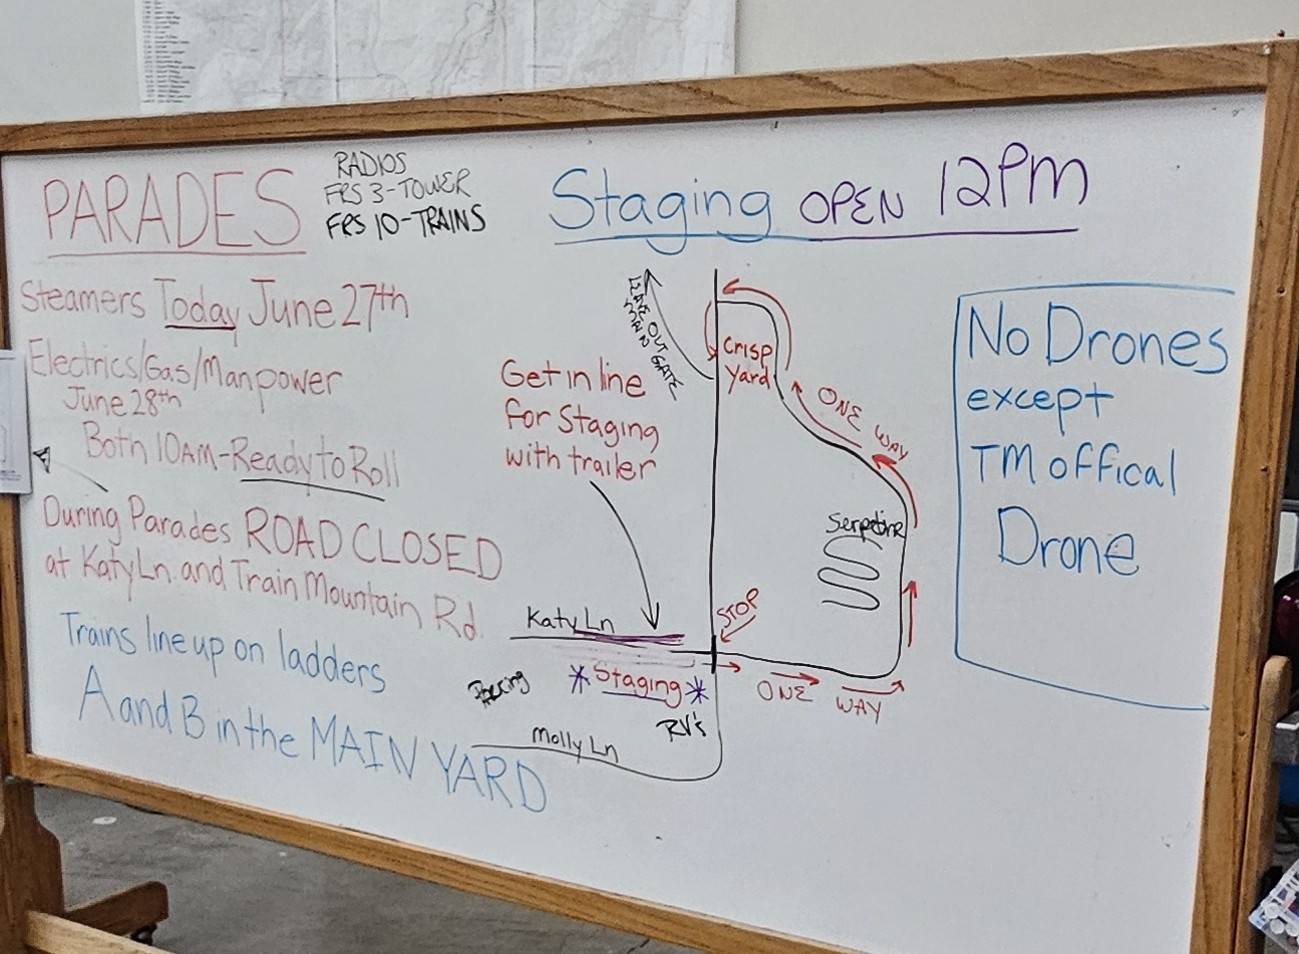 PARADES
RADIOS
FRS 3-TOWER
FRS 10-TRAINS
Staging OPEN 12PM
Steamers Today June 27th
Electrics/Gas/Manpower
June 28th
Both 10AM-Ready to Roll
During Parades ROAD CLOSED
at Katy Ln. and Train Mountain Rd.
Trains line up on ladders
A and B in the MAIN YARD
Get in line
for Staging
with trailer
OUT GATE
Crisp
Yard
ONE WAY
Serpetine
STOP
Katy Ln
*Staging*
RV's
Molly Ln
ONE WAY
No Drones
except
TM offical
Drone